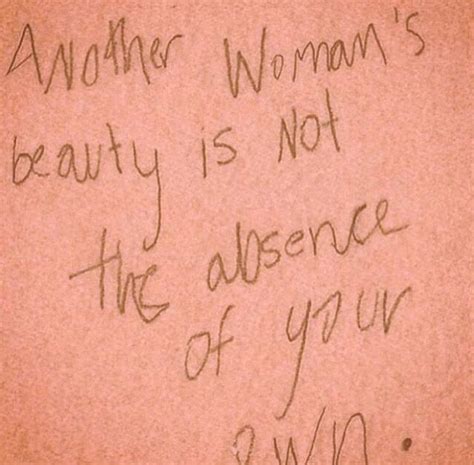 Another Woman's
beauty is Not
the absence
of your
own.